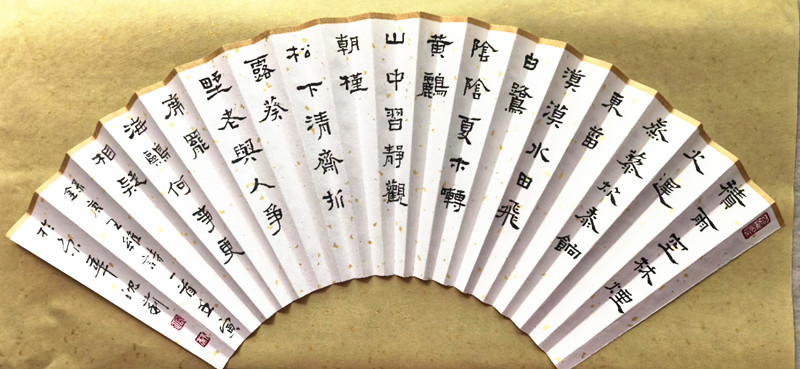 積雨空林煙
火遲
蒸藜炊黍餉
東菑
漠漠水田飛
白鷺
陰陰夏木囀
黃鸝
山中習靜觀
朝槿
松下清齋折
露葵
野老與人爭
席罷
海鷗何事更
相疑
錄唐王維詩一首寅
於京華